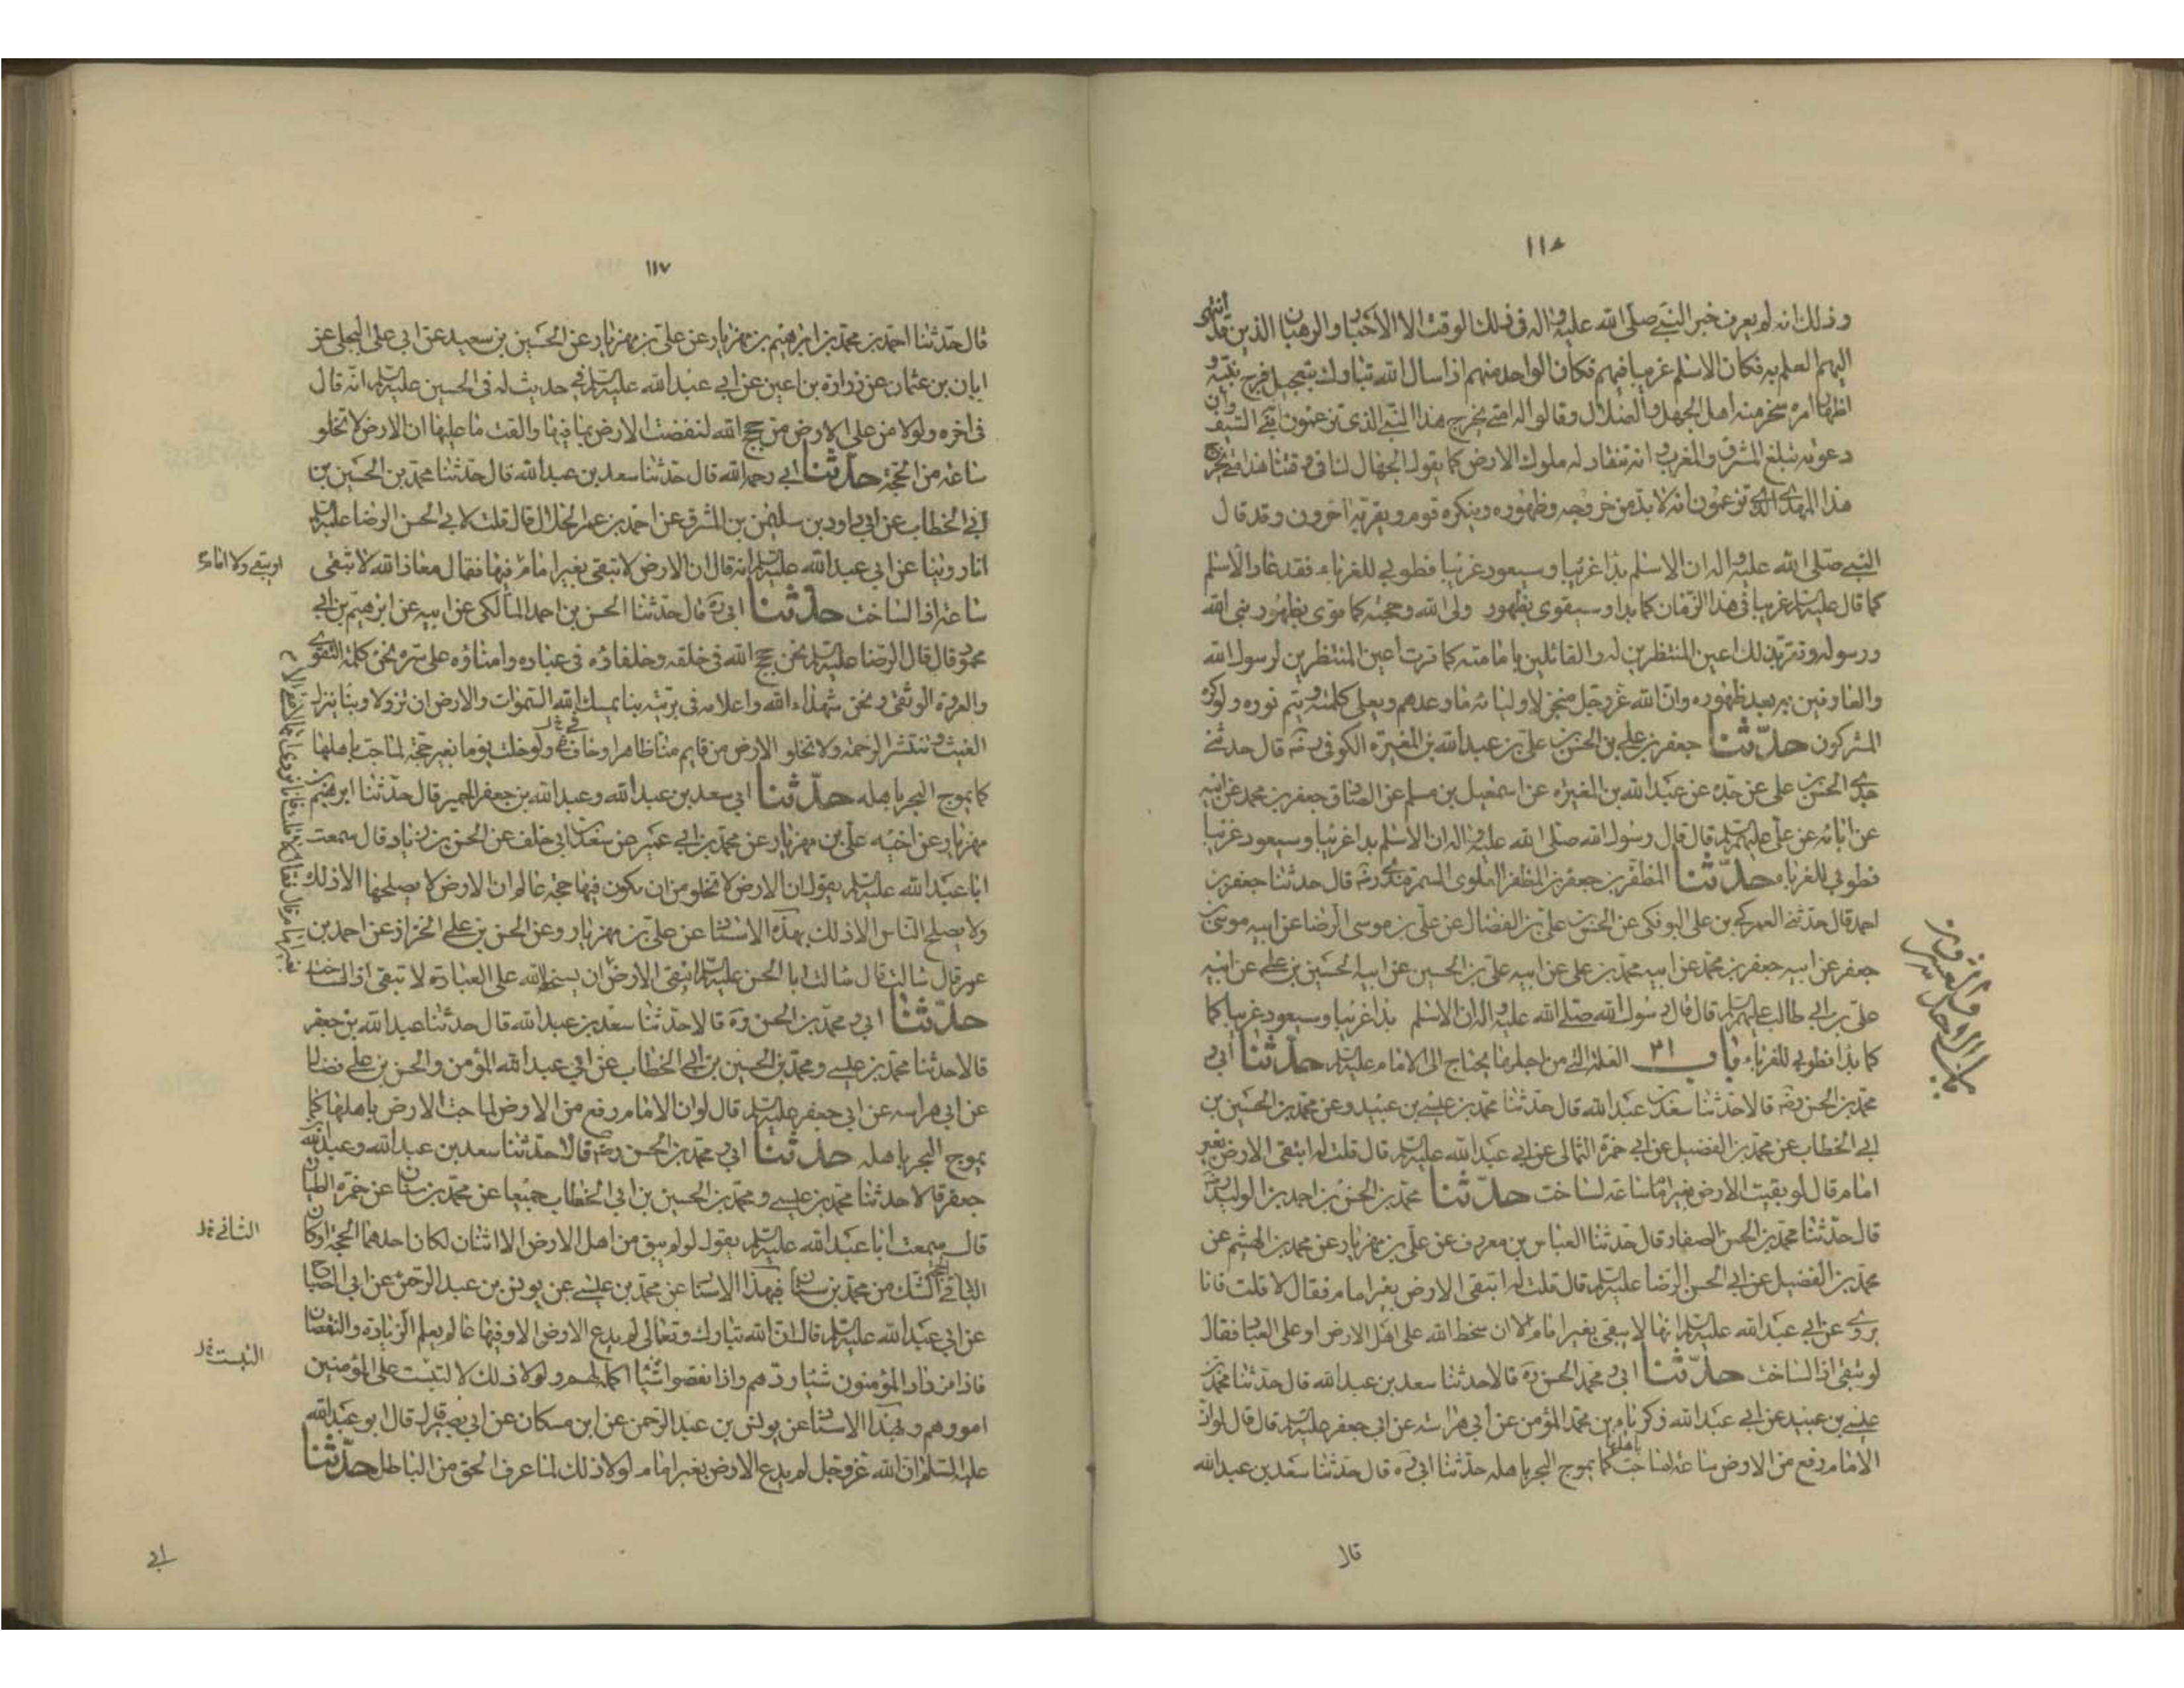 ١١٦
وذلك انه لم يعرف خبر النبي صلى الله عليه واله في ذلك الوقت الا الاحبار والرهبان الذين قد انتهى
اليهم العلم به فكان الاسلم غريبا فيهم فكان الواحد منهم اذا سال الله تبارك بتعجيل فرج نبيه و
اظهار امره سخر منه اهل الجهل والضلال وقالوا له متى يخرج هذا النبي الذي تزعمون انه نبي السيف وان
دعوته تبلغ المشرق والمغرب وانه تنقاد له ملوك الارض كما يقول الجهال لنا في وقتنا هذا متى يخرج
هذا المهدي الذي تزعمون انه لا بد من خروجه وظهوره وينكره قوم ويقر به آخرون وقد قال
النبي صلى الله عليه واله ان الاسلم بدا غريبا وسيعود غريبا فطوبي للغرباء فقد عاد الاسلم
كما قال عليه السلم غريبا في هذا الزمان كما بدا وسيقوى بظهور ولي الله وحجته كما قوى بظهور نبي الله
ورسوله وتقر بذلك اعين المنتظرين له والقائلين بامامته كما قرت اعين المنتظرين لرسول الله
والعارفين به بعد ظهوره وان الله عز وجل منجز لاوليائه ما وعدهم ويعلي كلمته ويتم نوره ولو كره
المشركون حدثنا جعفر بن علي بن الحسن بن علي بن عبد الله بن المغيرة الكوفي ره قال حدثني
جدي الحسن بن علي عن جده عن عبد الله بن المغيرة عن اسمعيل بن مسلم عن الصادق جعفر بن محمد عن ابيه
عن ابائه عن علي عليهم السلم قال قال رسول الله صلى الله عليه واله ان الاسلم بدا غريبا وسيعود غريبا
فطوبي للغرباء حدثنا المظفر بن جعفر بن المظفر العلوي السمرقندي رضه قال حدثنا جعفر بن
احمد قال حدثني العمركي بن علي البوفكي عن الحسن بن علي بن الفضال عن علي بن موسى الرضا عن ابيه موسى بن
جعفر عن ابيه جعفر بن محمد عن ابيه محمد بن علي عن ابيه علي بن الحسين عن ابيه الحسين بن علي عن ابيه
علي بن ابي طالب عليهم السلم قال قال رسول الله صلى الله عليه واله ان الاسلم بدا غريبا وسيعود غريبا كما
كما بدا فطوبي للغرباء باب ٢١ العلة التي من اجلها يحتاج الى الامام عليه السلم حدثنا ابي و
محمد بن الحسن رضه قالا حدثنا سعد بن عبد الله قال حدثنا محمد بن عيسى بن عبيد وعن محمد بن الحسين بن
ابي الخطاب عن محمد بن الفضيل عن ابي حمزة الثمالي عن ابي عبد الله عليه السلم قال قلت له اتبقى الارض بغير
امام قال لو بقيت الارض بغير امام ساعة لساخت حدثنا محمد بن الحسن بن احمد بن الوليد رضه
قال حدثنا محمد بن الحسن الصفار قال حدثنا العباس بن معروف عن علي بن مهزيار عن محمد بن الهشيم عن
محمد بن الفضيل عن ابي الحسن الرضا عليه السلم قال قلت له اتبقى الارض بغير امام فقال لا قلت فانا
نروي عن ابي عبد الله عليه السلم انها لا يبقى بغير امام الا ان سخط الله على اهل الارض او على العباد فقال
لو تبقى اذا لساخت حدثنا ابي و محمد الحسن ره قالا حدثنا سعد بن عبد الله قال حدثنا محمد بن
عيسى بن عبيد عن ابي عبد الله ذكريا بن محمد المؤمن عن ابي هراسة عن ابي جعفر عليه السلم قال قال لو ان
الامام رفع من الارض ساعة لماجت باهلها كما يموج البحر باهله حدثنا ابي ره قال حدثنا سعد بن عبد الله
قال
١١٧
قال حدثنا احمد بن محمد بن ابراهيم بن مهزيار عن علي بن مهزيار عن الحسين بن سعيد عن ابي علي البجلي عن
ابان بن عثمان عن زرارة بن اعين عن ابي عبد الله عليه السلم في حديث له في الحسين عليه السلم انه قال
في اخره ولولا من على الارض من حجج الله لنفضت الارض بما فيها والقت ما عليها ان الارض لا تخلو
ساعة من الحجة حدثنا ابي رحمه الله قال حدثنا سعد بن عبد الله قال حدثنا محمد بن الحسين بن
ابي الخطاب عن ابي داود بن سليمن بن المشرق عن احمد بن عمر الحلال قال قلت لابي الحسن الرضا عليه السلم
انا روينا عن ابي عبد الله عليه السلم انه قال ان الارض لا تبقى بغير امام فيها فقال معاذ الله لا تبقى
ساعة اذا لساخت حدثنا ابي ره قال حدثنا الحسن بن احمد المالكي عن ابيه عن ابرهيم بن ابي
محمود قال قال الرضا عليه السلم نحن حجج الله في خلقه وخلفاؤه في عباده وامناؤه على سره نحن كلمة التقوى
والعروة الوثقى ونحن شهداء الله واعلامه في بريته بنا يمسك الله السموات والارض ان تزولا وبنا ينزل
الغيث وتنتشر الرحمة ولا تخلو الارض من قايم منا ظاهر او خاف ولو خلت يوما بغير حجة لماجت باهلها
كما يموج البحر باهله حدثنا ابي سعد بن عبد الله وعبد الله بن جعفر الحميري قال حدثنا ابرهيم بن
مهزيار عن اخيه علي بن مهزيار عن محمد بن ابي عمير عن سعد بن ابي خلف عن الحسن بن زياد قال سمعت
ابا عبد الله عليه السلم يقول ان الارض لا تخلو من ان يكون فيها حجة عالم ان الارض لا يصلحها الا ذلك
ولا يصلح الناس الا ذلك بهذه الاسناد عن علي بن مهزيار وعن الحسن بن علي الخزاز عن احمد بن
عمر قال سالت قال سالت ابا الحسن عليه السلم اتبقى الارض ان يسخط الله على العباد لا تبقى اذا لساخت
حدثنا ابي و محمد بن الحسن ره قالا حدثنا سعد بن عبد الله قال حدثنا عبد الله بن جعفر
قالا حدثنا محمد بن عيسى ومحمد بن الحسين بن ابي الخطاب عن ابي عبد الله المؤمن والحسن بن علي فضال
عن ابي هراسه عن ابي جعفر عليه السلم قال لو ان الامام رفع من الارض لماجت الارض باهلها كما
يموج البحر باهله حدثنا ابي و محمد بن الحسن رضه قالا حدثنا سعد بن عبد الله وعبد الله بن
جعفر قالا حدثنا محمد بن عيسى ومحمد بن الحسين بن ابي الخطاب جميعا عن محمد بن سنان عن حمزة الطيار
قال سمعت ابا عبد الله عليه السلم يقول لو لم يبق من اهل الارض الا اثنان لكان احدهما الحجة او كان
الباقي الحجة الشك من محمد بن سنان فبهذا الاسناد عن محمد بن عيسى عن يونس بن عبد الرحمن عن ابي الصباح
عن ابي عبد الله عليه السلم قال ان الله تبارك وتعالى لم يدع الارض الا وفيها عالم يعلم الزيادة والنقصان
فاذا زاد المؤمنون شيئا ردهم واذا نقصوا شيئا اكمله لهم ولولا ذلك لا لتبست على المؤمنين
امورهم وبهذا الاسناد عن يونس بن عبد الرحمن عن ابن مسكان عن ابي بصير قال قال ابو عبد الله
عليه السلم ان الله عز وجل لم يدع الارض بغير امام لولا ذلك لما عرف الحق من الباطل حدثنا
ابي